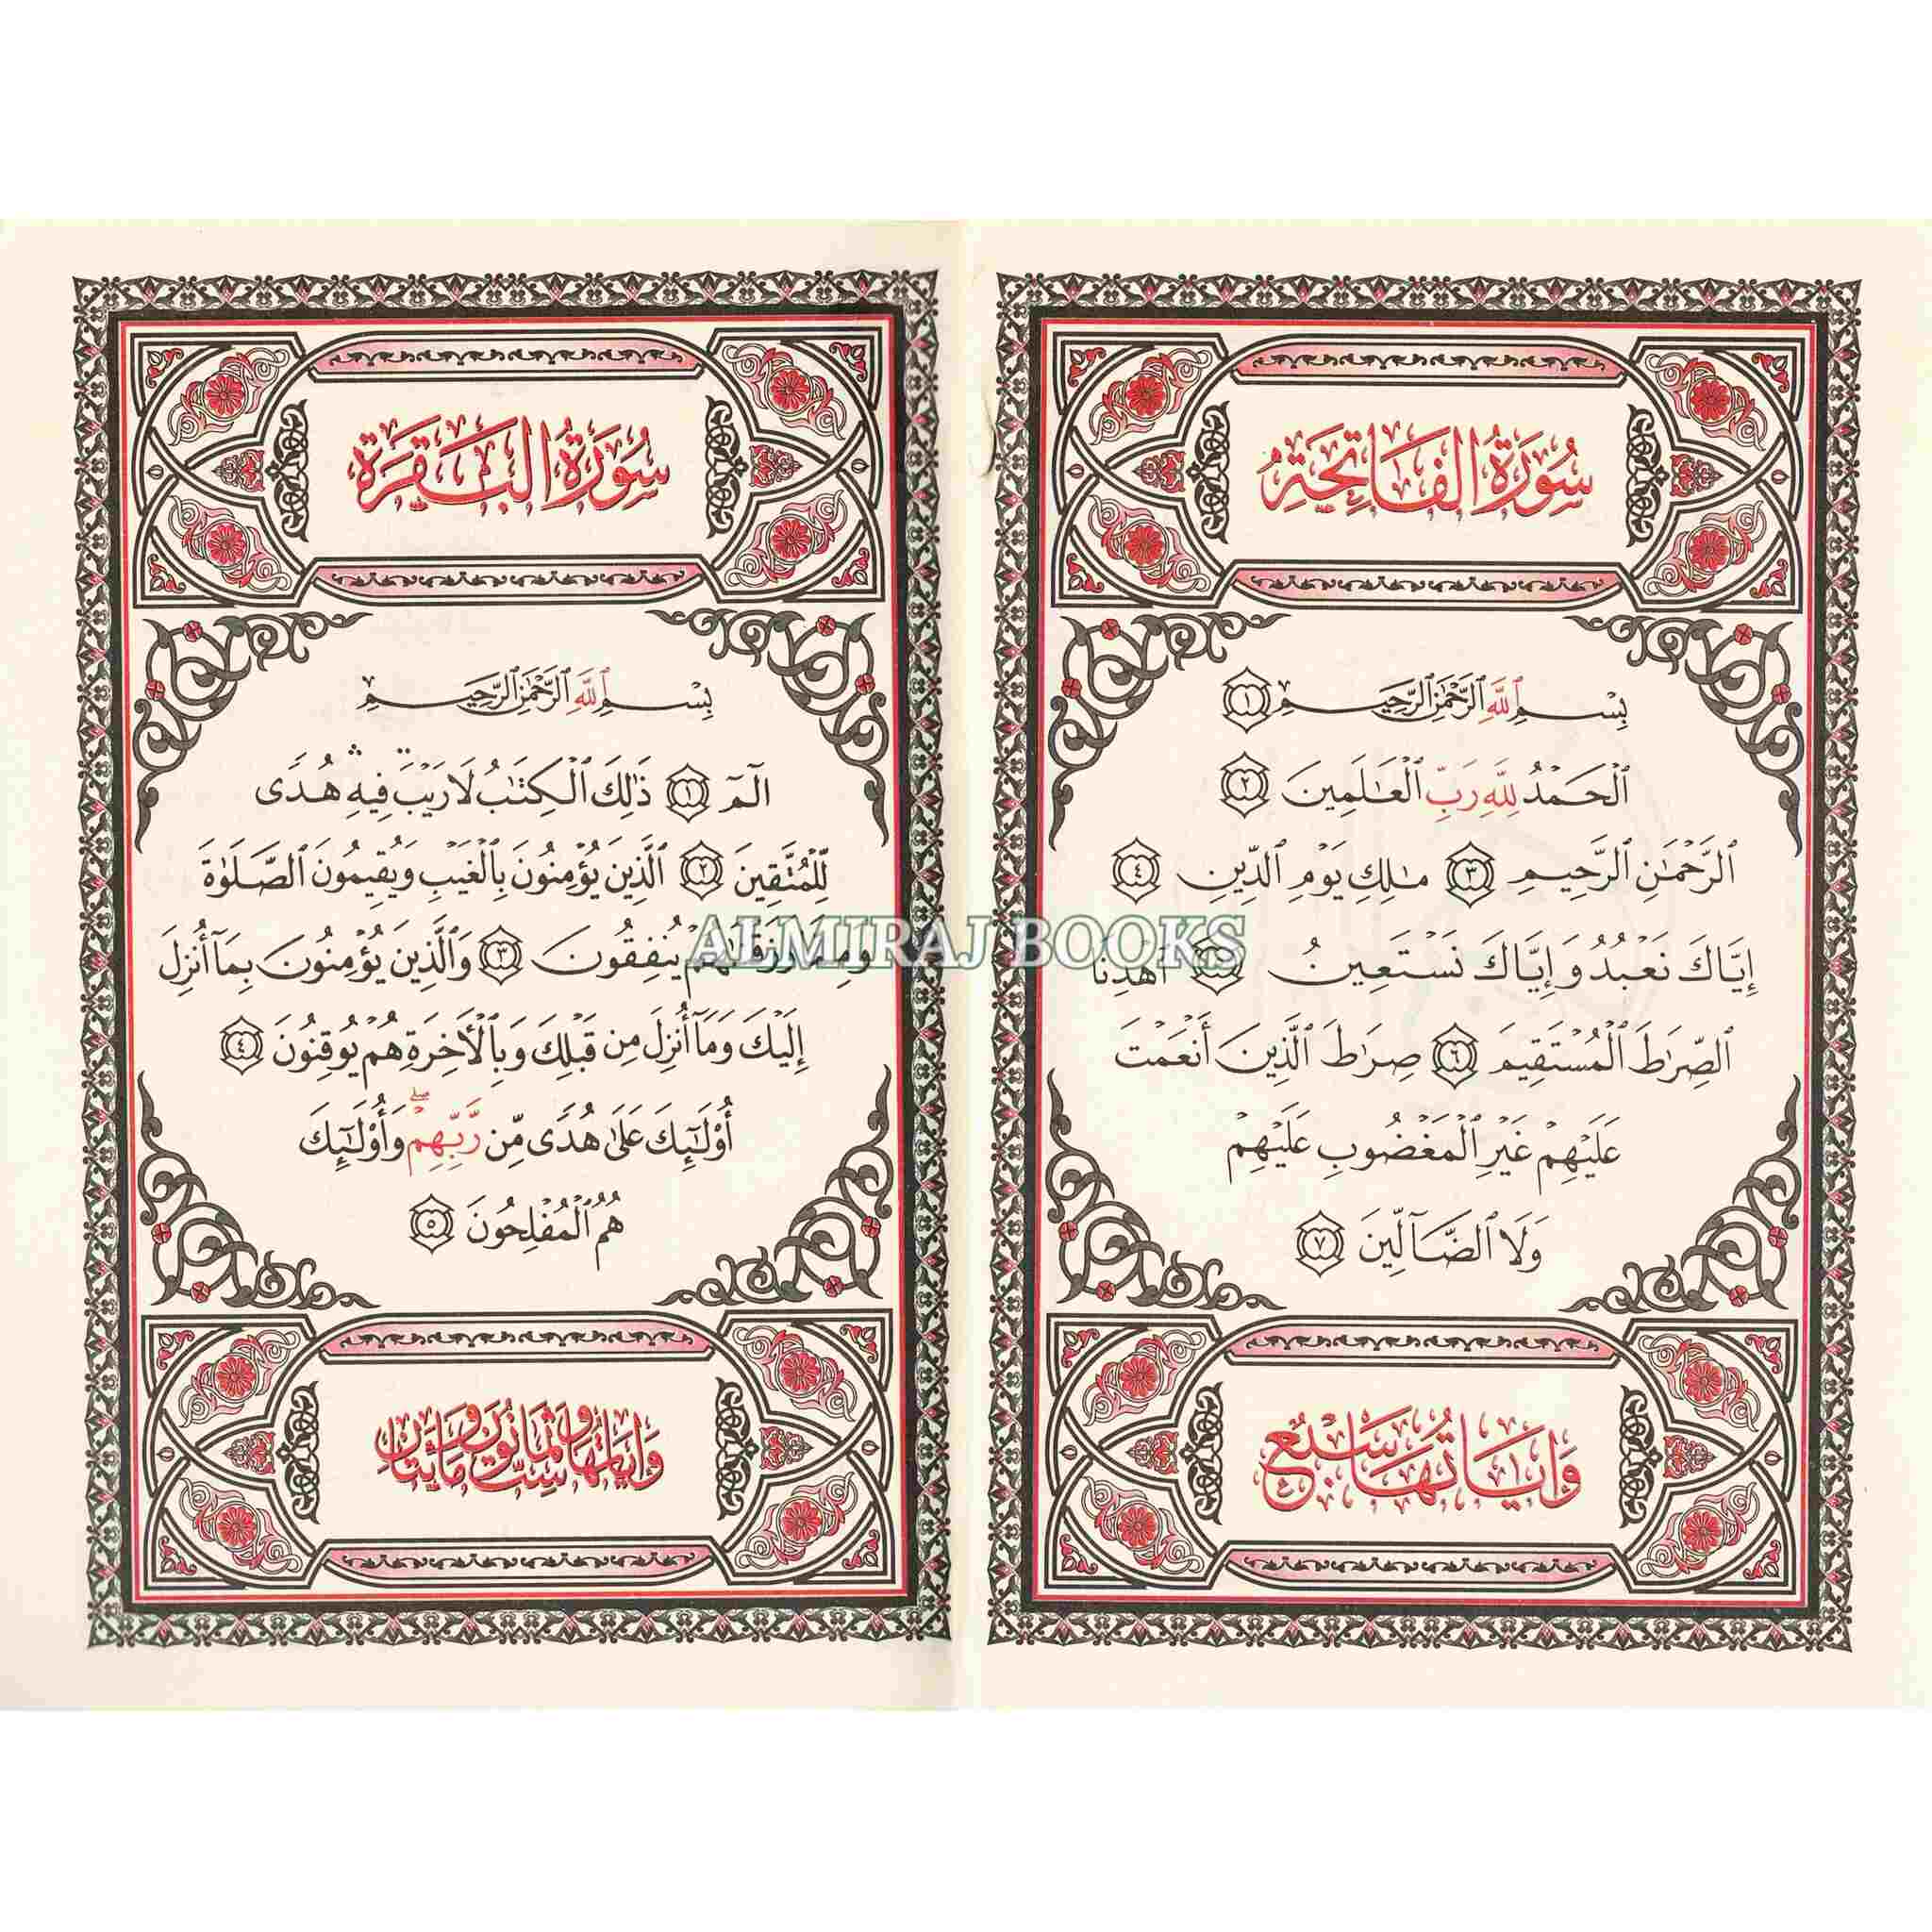 سُورَةُ الفَاتِحَةِ
بِسْمِ ٱللَّهِ ٱلرَّحْمَٰنِ ٱلرَّحِيمِ ١
ٱلْحَمْدُ لِلَّهِ رَبِّ ٱلْعَٰلَمِينَ ٢
ٱلرَّحْمَٰنِ ٱلرَّحِيمِ ٣ مَٰلِكِ يَوْمِ ٱلدِّينِ ٤
إِيَّاكَ نَعْبُدُ وَإِيَّاكَ نَسْتَعِينُ ٥ ٱهْدِنَا
ٱلصِّرَٰطَ ٱلْمُسْتَقِيمَ ٦ صِرَٰطَ ٱلَّذِينَ أَنْعَمْتَ
عَلَيْهِمْ غَيْرِ ٱلْمَغْضُوبِ عَلَيْهِمْ
وَلَا ٱلضَّآلِّينَ ٧
وَآيَاتُهَا سَبْعٌ
سُورَةُ البَقَرَةِ
بِسْمِ ٱللَّهِ ٱلرَّحْمَٰنِ ٱلرَّحِيمِ
الٓمٓ ١ ذَٰلِكَ ٱلْكِتَٰبُ لَا رَيْبَ ۛ فِيهِ ۛ هُدًى
لِّلْمُتَّقِينَ ٢ ٱلَّذِينَ يُؤْمِنُونَ بِٱلْغَيْبِ وَيُقِيمُونَ ٱلصَّلَوٰةَ
وَمِمَّا رَزَقْنَٰهُمْ يُنفِقُونَ ٣ وَٱلَّذِينَ يُؤْمِنُونَ بِمَآ أُنزِلَ
إِلَيْكَ وَمَآ أُنزِلَ مِن قَبْلِكَ وَبِٱلْأَخِرَةِ هُمْ يُوقِنُونَ ٤
أُو۟لَٰٓئِكَ عَلَىٰ هُدًى مِّن رَّبِّهِمْ ۖ وَأُو۟لَٰٓئِكَ
هُمُ ٱلْمُفْلِحُونَ ٥
وَآيَاتُهَا سِتٌّ وَثَمَانُونَ وَمَائَتَانِ
ALMIRAJ BOOKS